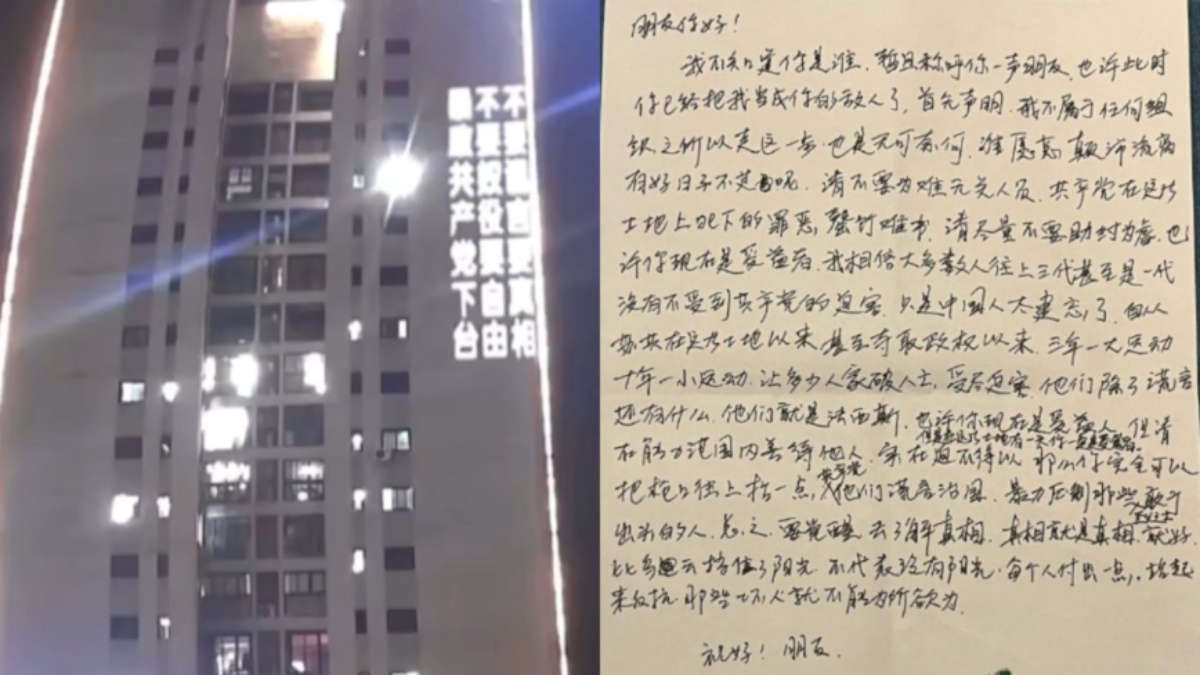 不要谎言要真相
不要奴役要自由
暴政共产党下台
朋友你好！
我不知道你是谁，暂且称呼你一声朋友，也许此时
你已给把我当成你的敌人了，首先声明，我不属于任何组
织之所以走这一步也是无可奈何，谁愿意颠沛流离
有好日子不过呢，请不要为难无关人员，共产党在这片
土地上犯下的罪恶，罄竹难书，请尽量不要助纣为虐，也
许你现在是受益者，我相信大多数人往上三代甚至是一代
没有不受到共产党的迫害，只是中国人太健忘了，自从
苏共在这片土地以来，甚至夺取政权以来，三年一大运动
十年一小运动，让多少人家破人亡，受尽迫害，他们除了谎言
还有什么，他们就是法西斯，也许你现在是受益人，但请
在能力范围内善待他人，实在迫不得以，那么你完全可以
把枪口往上抬一点，共产党他们谎言治国，暴力压制那些敢于
出头的人，总之，要觉醒，去了解真相，真相就是真相，就好
比乌云挡住了阳光，不代表没有阳光，每个人付出一点，站起
来反抗，那些坏人就不能为所欲为，
祝好！朋友，